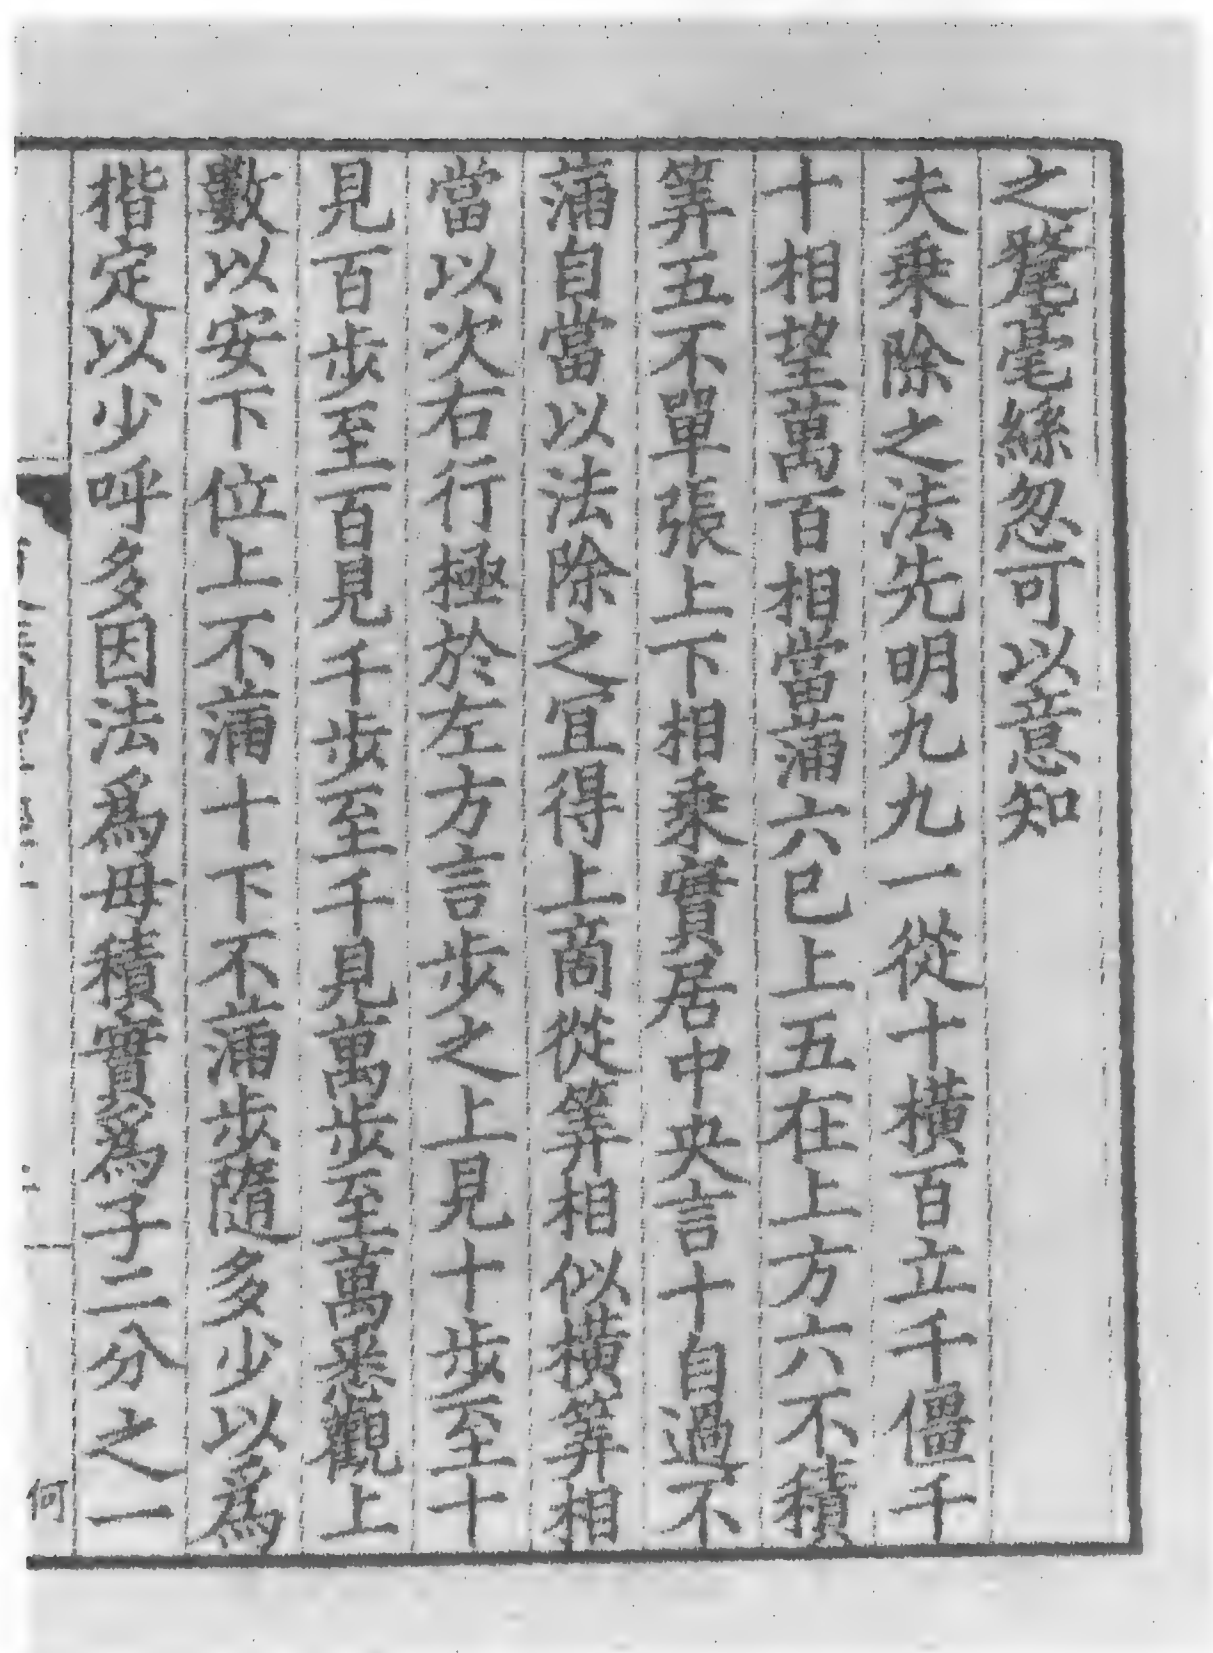 之氂毫絲忽可以意知
夫乗除之法先明九九一從十橫百立千僵千
十相望萬百相當滿六已上五在上方六不積
筭五不單張上下相乗實居中央言十自過不
滿自當以法除之宜得上商從筭相似橫筭相
當以次右行極於左方言步之上見十步至十
見百步至百見千步至千見萬步至萬悉觀上
數以安下位上不滿十下不滿步隨多少以爲
楷定以少呼多因法爲母積實爲子二分之一
何